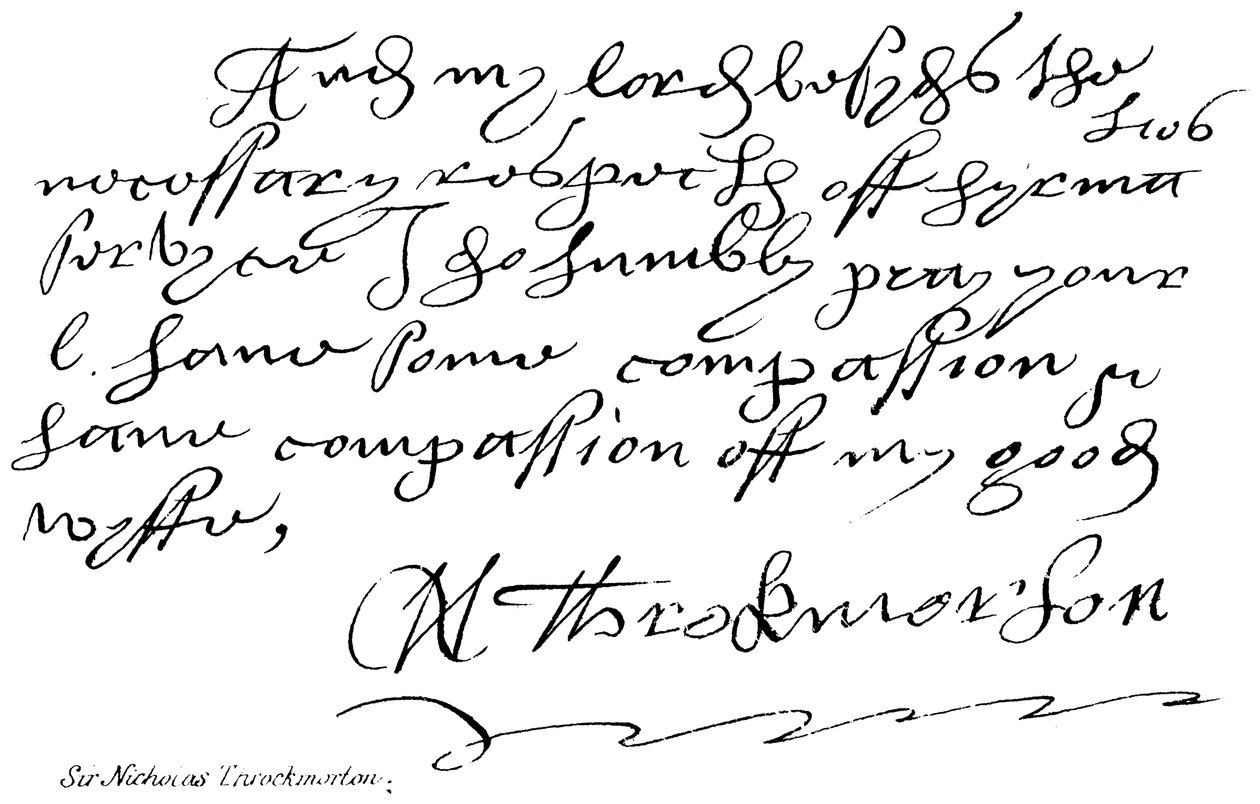 And my lord besyds the
necessary respects off hyr ma
servyce I do humbly pray your
l. have some compassion
have compassion off my good
wyffe,
N Throkmorton
Sir Nicholas Throckmorton.